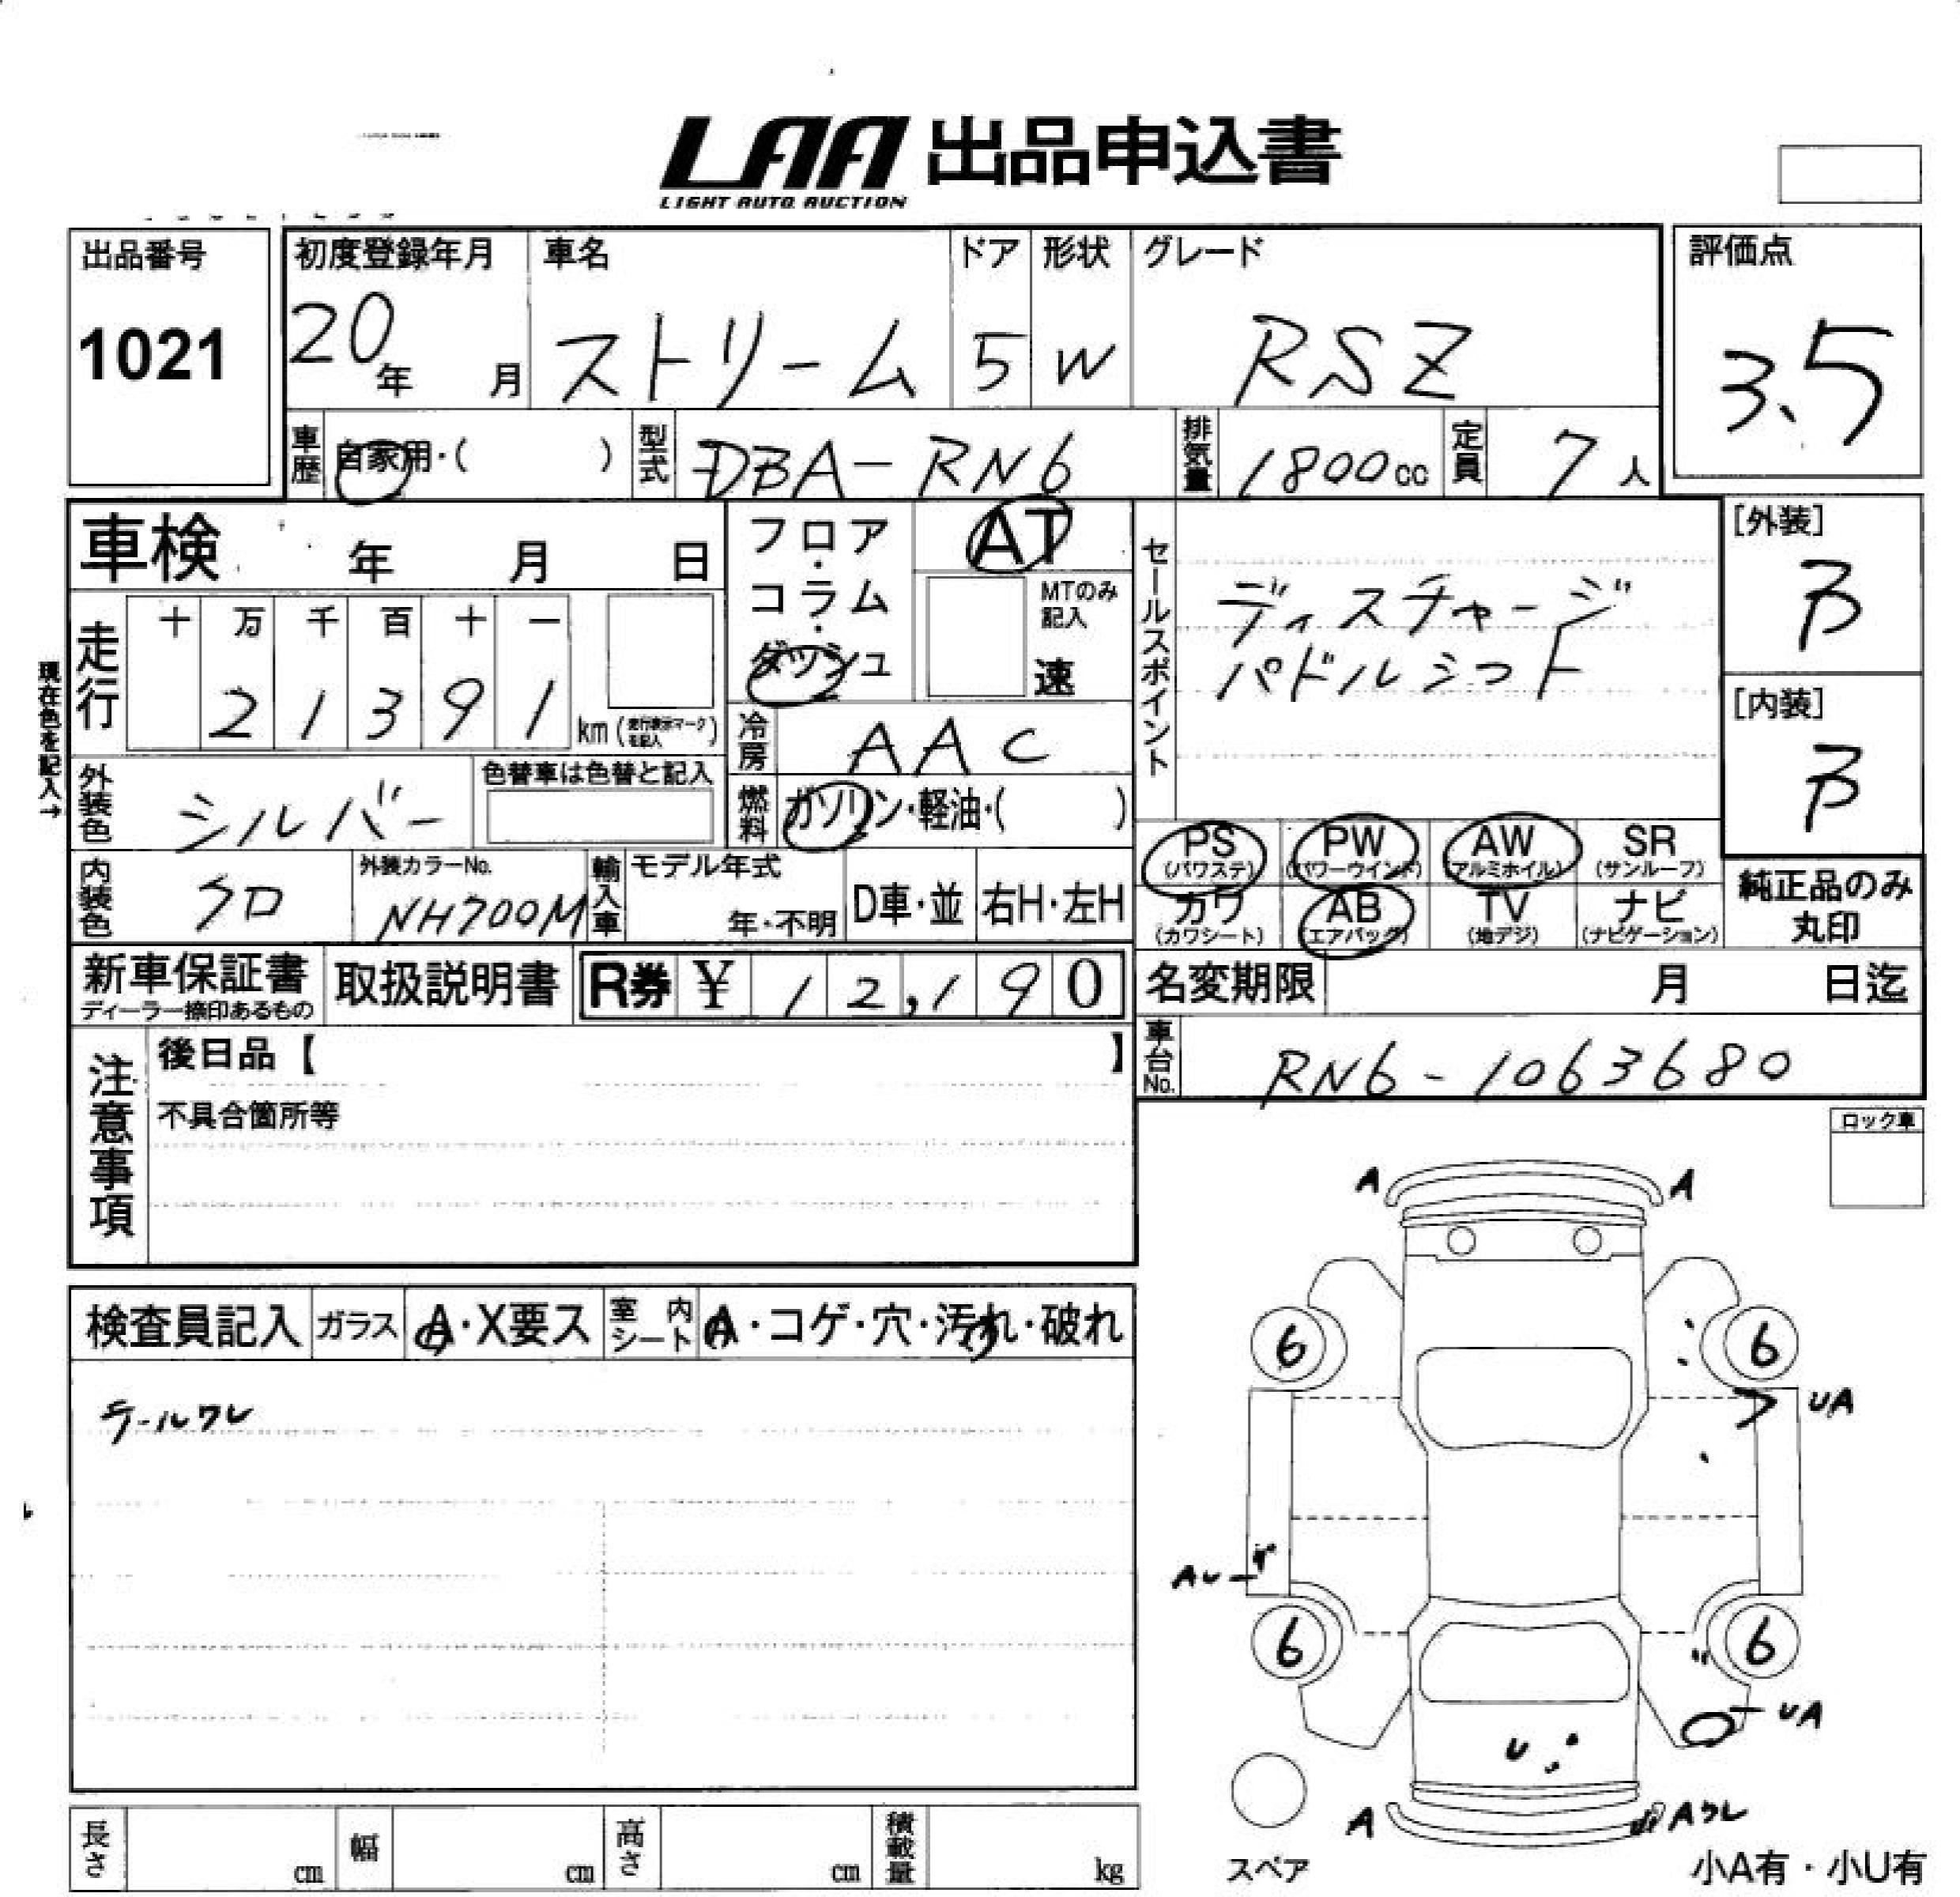 LAA 出品申込書
LIGHT AUTO AUCTION
出品番号
1021
初度登録年月
20年 月
車名
ストリーム
ドア
5
形状
W
グレード
RSZ
評価点
3.5
車歴 自家用・( )
型式 DBA-RN6
排気量 1800cc
定員 7人
車検 年 月 日
走行
十 万 千 百 十 一
2 1 3 9 1
km (走行表示マークを記入)
現在色を記入→
フロア・コラム・ダッシュ
AT
MTのみ記入
速
冷房 AAC
燃料 ガソリン・軽油・( )
セールスポイント
ディスチャージ
パドルシフト
[外装]
B
[内装]
B
外装色 シルバー
色替車は色替と記入
内装色 クロ
外装カラーNo.
NH700M
輸入車
モデル年式
年・不明
D車・並
右H・左H
PS (パワステ)
PW (パワーウインド)
AW (アルミホイル)
SR (サンルーフ)
カワ (カワシート)
AB (エアバッグ)
TV (地デジ)
ナビ (ナビゲーション)
純正品のみ
丸印
新車保証書
ディーラー捺印あるもの
取扱説明書
R券 ¥ 12,190
名変期限 月 日迄
車台No. RN6-1063680
注意事項
後日品【 】
不具合箇所等
ロック車
検査員記入
ガラス A・X要ス
室内シート A・コゲ・穴・汚れ・破れ
テールワレ
A A
6 6
UA
6 6
UA
U
A Aワレ
スペア
小A有・小U有
長さ cm
幅 cm
高さ cm
積載量 kg